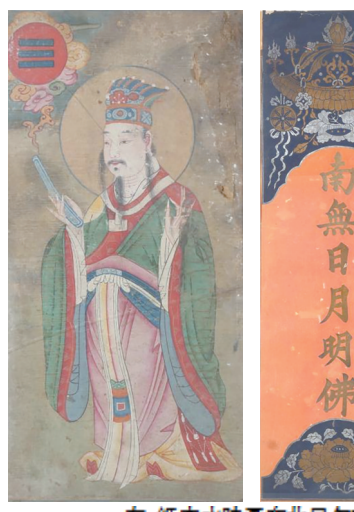 南無日月明佛